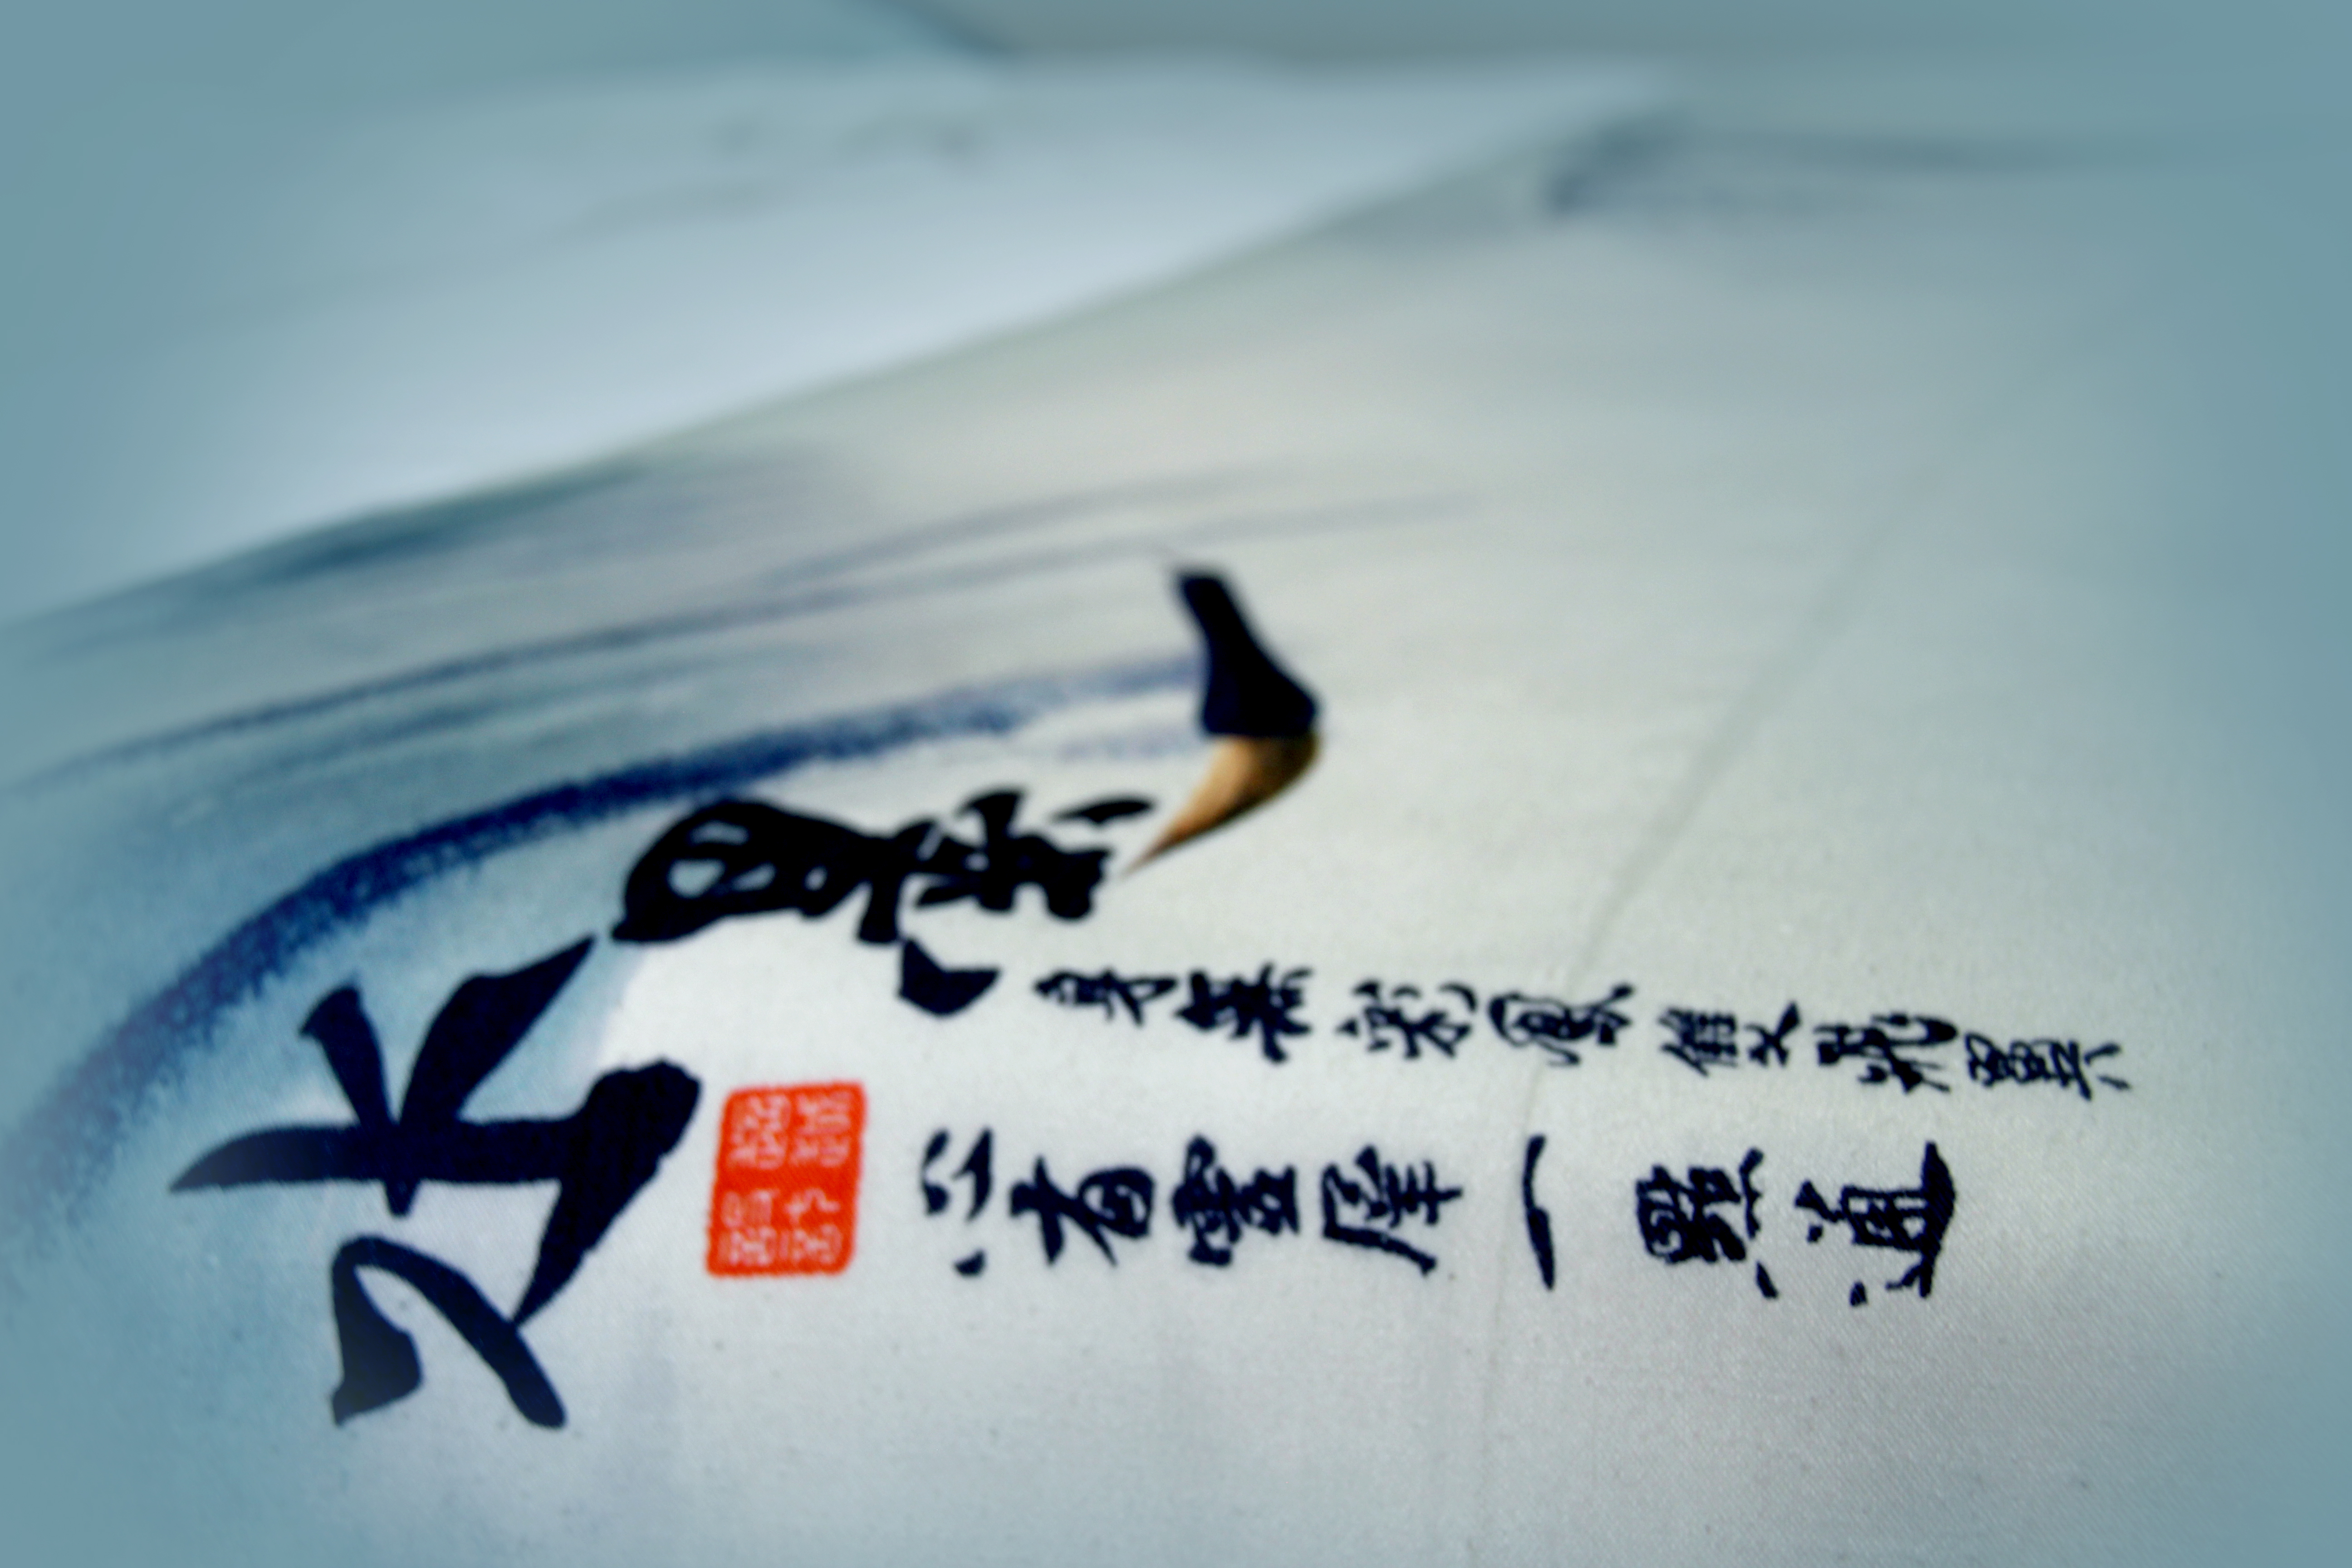 水墨
身無彩鳳雙飛翼
心有靈犀一點通